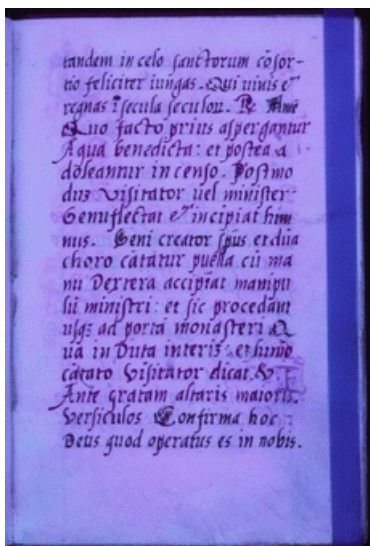 tandem in celo sanctorum cōsor-
tio feliciter iungas. Qui uiuis et
regnas ī secula seculoꝝ. ℞ Amē
Quo facto prius aspergantur
Aqua benedicta: et postea a
doleantur in censo. Postmo
duꝫ Visitator uel minister
Genuflectat et incipiat him
nus. Veni creator spūs et dūa
choro cātatur puella cū ma
nu Dextera accipiat manipu
lū ministri: et sic procedant
usqꝫ ad portā monasteri Q
ua in Duta interiꝫ: et himō
cātato Visitator dicat. ℣
Ante gratam altaris maioris.
Versiculos Confirma hoc
Deus quod operatus es in nobis.